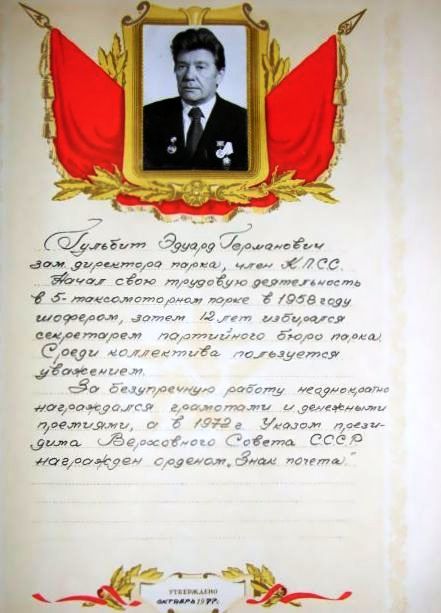 Гульбит Эдуард Германович
зам. директора парка, член КПСС.
Начал свою трудовую деятельность
в 5-таксомоторном парке в 1958 году
шофером, затем 12 лет избирался
секретарем партийного бюро парка.
Среди коллектива пользуется
уважением.
За безупречную работу неоднократно
награждался грамотами и денежными
премиями, а в 1972 г Указом прези-
диума Верховного Совета СССР
награжден орденом „Знак почета."
УТВЕРЖДЕНО
ОКТЯБРЬ 1977г.